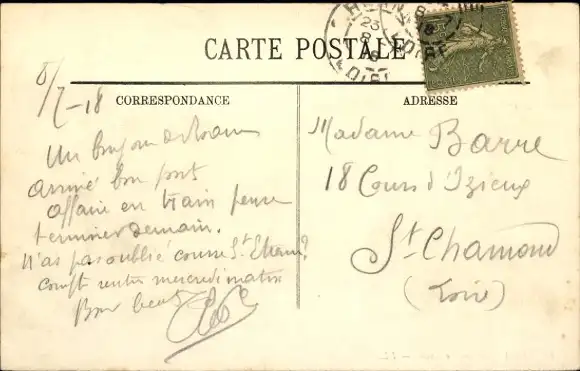 CARTE POSTALE
CORRESPONDANCE
ADRESSE
8/7-18
Un bonjour de Roanne
arrivé bon port
affaire en train pense
terminer demain.
N'as pas oublié course St. Etienne?
compt rentrer mercredi matin
Bons
Madame Barre
18 Cours d'Izieux
St. Chamond
(Loire)